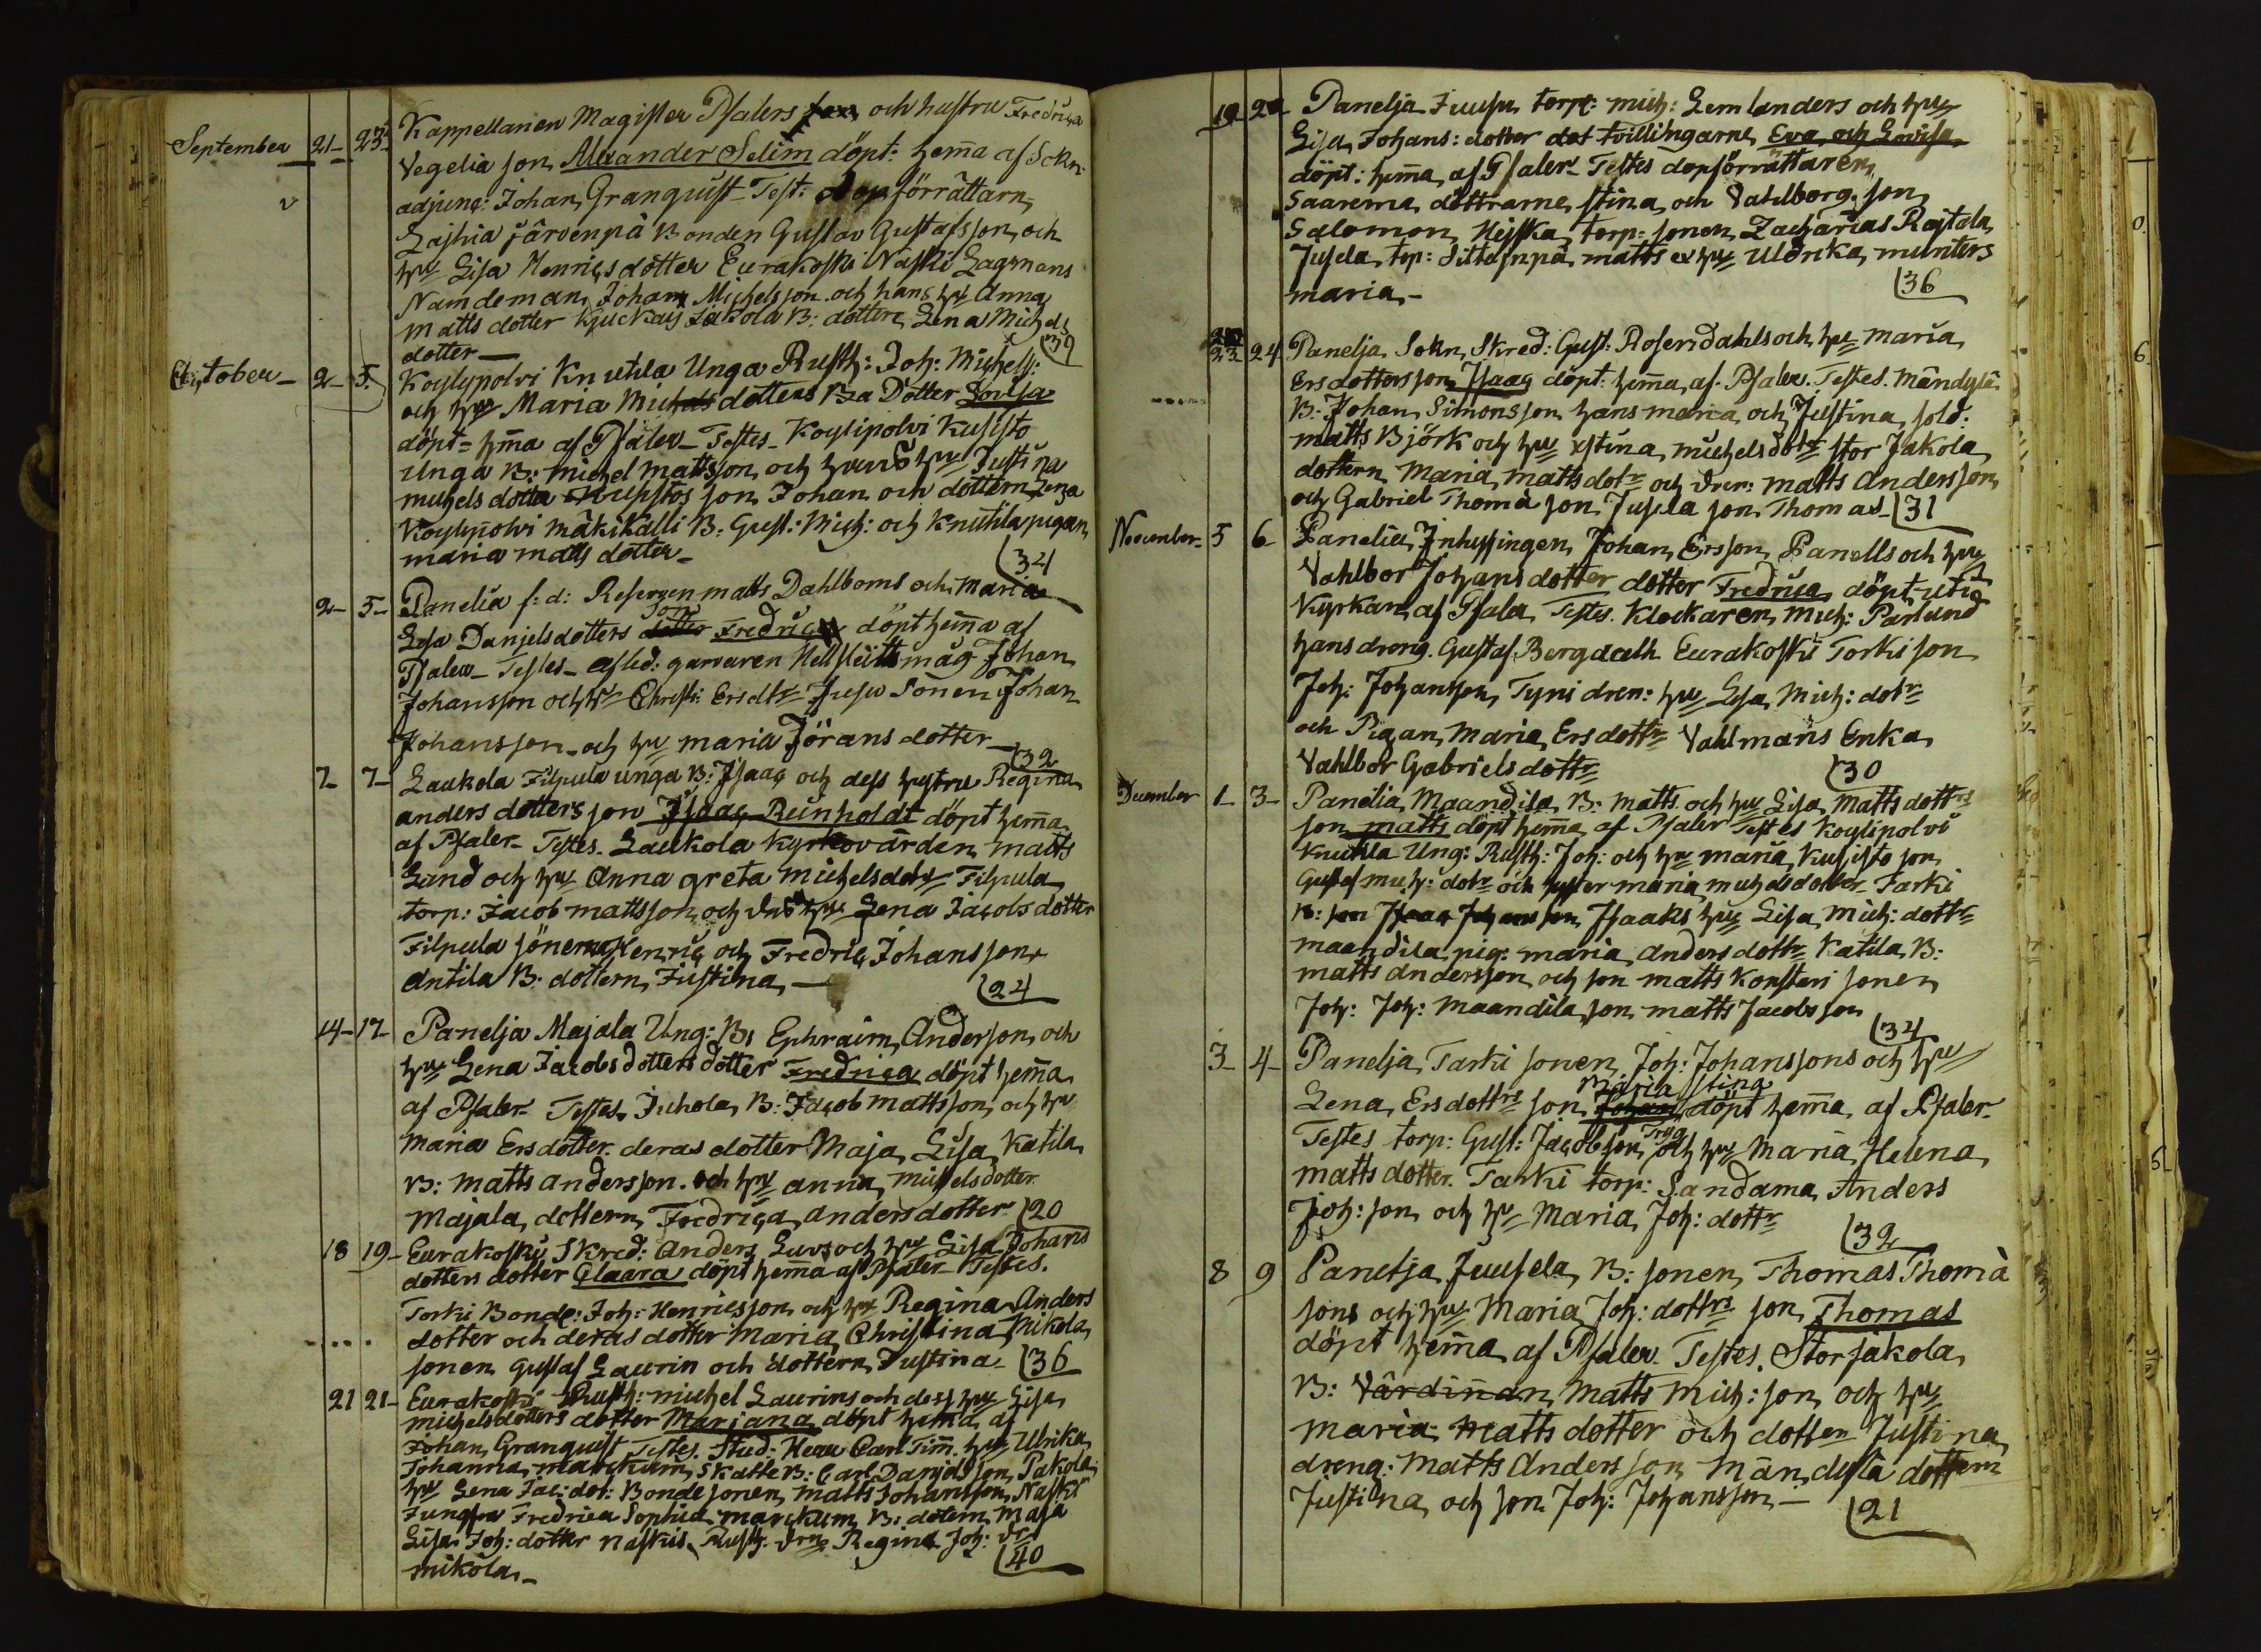 September 21- 23- Kappellanen Magister Pfalers och hustru Fredrica
Vegelia son Alexander Selim döpt: hem̄a af Sokn:
adjunc: Johan Granquist Test: dopförrättarn,
Lajhia järvenpä Bonden Gustav Gustafsson, och
hu Lisa Henricsdotter Eurakoski Naski Lagmans
Namdeman Johan Michelsson och hans hu Anna
Matts dotter Kjuckais Jakola B: dottern Lena Michels
dotter — 39
October- 2- 5. Koylypolvi Knutila Unga Rusth: Joh: Michelss:
och hu Maria Michels dotters B:a Dotter Lovisa
döpt= hm̄a af Pfaler- Testes- Koylipolvi Kusisto
Unga B: Michel Mattsson, och hu Justina
michels dotter son Johan och dottern Lena
Koylypolvi mäkikalli B: Gust: Mich: och Knutila pigan
maria matts dotter- 34
2- 5- Panelia f: d: Reserven matts Dahlboms och Maria
Lisa Danjelsdotters dotter son Fredric döpt hem̄a af
Pfaler- Testes- afled: garvaren måg Johan
Johansson och hu Christ: Ersdtr Jusu Sonen Johan
Johansson- och hu maria Jörans dotter- 32
7- 7- Laukola Filpula unga B: Isaac och dess hustru Regina
anders dotters son Isaac Reinholdt döpt hem̄a
af Pfaler- Testes- Laukola Kyrkovärden matts
Lund och hu Anna greta michelsdotr Filpula
torp: Jacob mattsson och hu Lena Jacobs dotter
Filpula sönerna Henric och Fredric Johanssone
Antila B: dottern Justina, — 24
14- 17- Panelja Majala Ung: B: Ephraim Anderson, och
hu Lena Jacobs dotters dotter Fredrica döpt hem̄a
af Pfaler- Testes Juhola, B: Jacob mattsson, och hu
Maria Ersdotter. deras dotter Maja Lisa Katila
B: matts andersson. och hu anna, michelsdotter.
Majala dottern, Fredrica andersdotter 20
18 19- Eurakoski, Skred: Anders Luvs och hu Lisa Johans
dotters dotter Claara döpt hem̄a af Pfaler- Testes.
Torki Bonde: Joh: Henricsson och hu Regina Anders
dotter och deras dotter Maria Christina Mikola
sonen Gustaf Laurin och dottern Justina- 36
21 21- Eurakoski Rusth: michel Laurins och dess hu Lisa
michelsdotters dotter Marjana döpt hem̄a af
Johan Granquist Testes. Stud: Herr Carl Tim̄. hu Ulrika
Johanna marckum, Skatte B: Carl Danjelsson Jakola
hu Lena Jac: dot: Bonde sonen, matts Johansson, Naski
Jungfru Fredrica Sophia marckum B: dotern Maja
Lisa Joh: dotter naskis. Rusth: Regina Joh: dr
mikola- 40
19- 20- Panelja Juusu torp: mich: Semlanders och hu
Lisa Johans: dotter tvillingarne Eva och Lovisa
döpt: hem̄a, af Pfaler- Testes dopförrättaren,
Saarema döttrarne, stina, och Vahlborg, son
Salomon Heiska, torp: sonen Zacharias Rajtala,
Jusela, top: matts hu Uldrika, munters
maria,- 36
23 24 Panelja Sokn, Skred: Gust: Rosendahls och hu maria
Ersdotters son Isaac döpt: hem̄a, af Pfaler. Testes. Mändylä
B: Johan Simonsson hans maria, och Justina, sold:
matts Björk och hu stina, michelsdotr Stor Jakola
dottern Maria mattsdotr och dren: matts Andersson,
och Gabriel Thomä son Jusela son Thomas- 31
November- 5 6- Panelia Inhysingen Johan Ersson Panells och hu
Vahlbor Johans dotter dotter Fredrica döpt uti
Kyrkan af Pfaler Testes. Klockaren, Mich: Parlund
hans dreng. Gustaf Bergdalh Eurakoski Torki son
Joh: Johansson, Tyni dren: hu Lisa, Mich: dotr
och Pigan, Maria Ersdottr Vahlmans Enka
Vahlbor Gabriels dottr 30
December 1- 3- Panelia Maandila B: matts och hu Lisa Matts dottrs
son matts döpt hem̄a af Pfaler Testes Koylipolvi
Knutila Ung: Rusth: Joh: och hu maria Kusisto son
Gustaf mich: dotr och syster maria michelsdotter Tarki
B: son Isaac Johansson Isaaks hu Lisa Mich: dottr
maandila, pig: maria andersdottr Katila, B:
matts Andersson, och son matts Konsteri sonen
Joh: Joh: Maandila son matts Jacobsson 34
3- 4- Panelja Tarki sonen, Joh: Johanssons och hu
Lena, Ersdottrs son Johan Maria Stina döpt hem̄a af Pfaler-
Testes torp: Gust: Jacobsson Tryg och hu Maria Helena
matts dotter. Tarki torp: Sandama Anders
Joh: son och hu Maria, Joh: dottr 32
8 9 Panelja Juusela, B: sonen Thomas Thomä
sons och hu Maria Joh: dottrs son Thomas
döpt hem̄a af Pfaler. Testes. Storjakola,
B: Värdin̄an, Matts Mich: son, och hu
Maria Matts dotter och dotter Justina,
dreng: Matts Andersson Mändylä dottern
Justina och son Joh: Johansson- 21